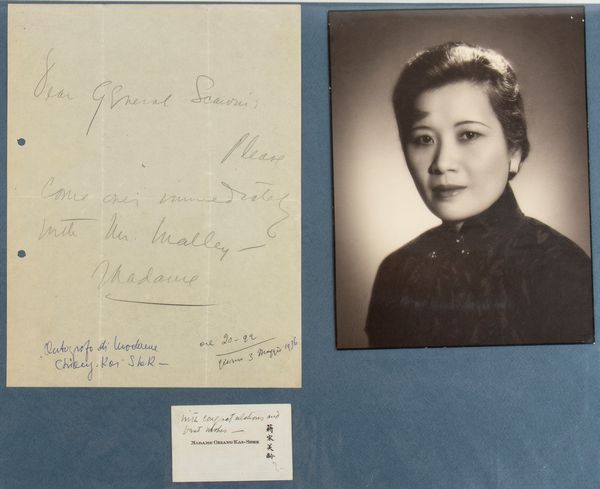 Dear General Scaroni:
Please
come over immediately
with Mr. Malley —
Madame
Autografo di Madame
Chiang-Kai Shek —
ore 20-22
giorno 3 Maggio 1936
with congratulations and
best wishes —
MADAME CHIANG KAI-SHEK
蔣宋美齡